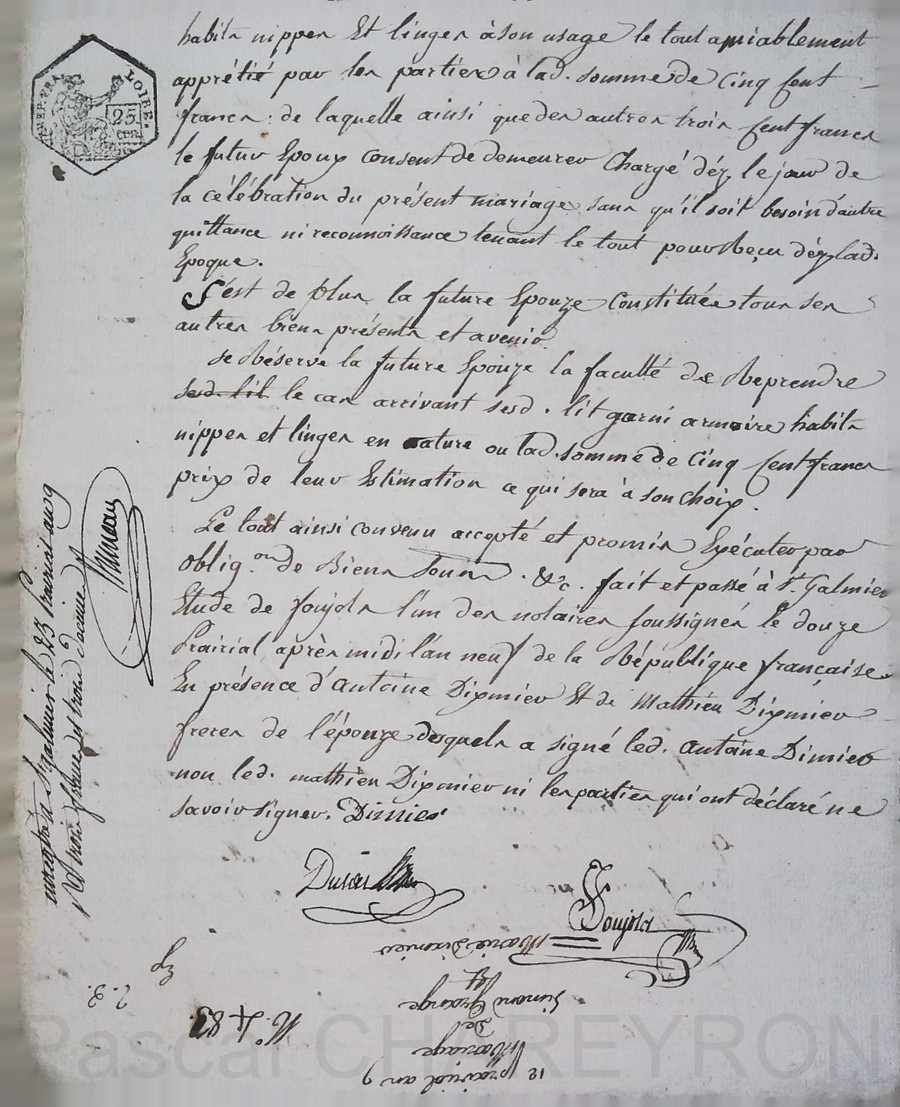 habits nippes Et linges à son usage le tout amiablement
apprétié par les parties à lad. somme de Cinq Cent
francs : de laquelle ainsi que des autres trois Cent francs
le futur Epoux Consent de demeurer Chargé déz le jour de
la célébration du présent mariage sans qu'il soit besoin d'autre
quittance ni reconnoissance tenant le tout pour Reçu déz lad.
Epoque.
S'est de plus la future Epouze Constituée tous ses
autres biens présents et avenir
se Réserve la future Epouze la faculté de Reprendre
sesd. lit le cas arrivant sesd. lit garni armoire habits
nippes et linges en nature ou lad. somme de Cinq Cent francs
prix de leur Estimation ce qui sera à son Choix.
Le tout ainsi convenu accepté et promis Exécuter par
oblig.on de Biens Soum . &c. fait et passé à St. Galmier
Etude de Joujols l'un des notaires soussignés le douze
Prairial après midi l'an neuf de la République française.
En présence d'Antoine Dixmier Et de Mathieu Dixmier
freres de l'épouze desquels a signé led. Antoine Dimier
non led. mathieu Dixmier ni les parties qui ont déclaré ne
savoir signer. Dimier
Joujols
enregtré à St galmier le 23 Prairial an 9
12 prairial an 9
Mariage
De
Simond Grange
Et
Marie Dixmier
N.° 483
25
cen.
LOIRE.
Pascal CHAREYRON